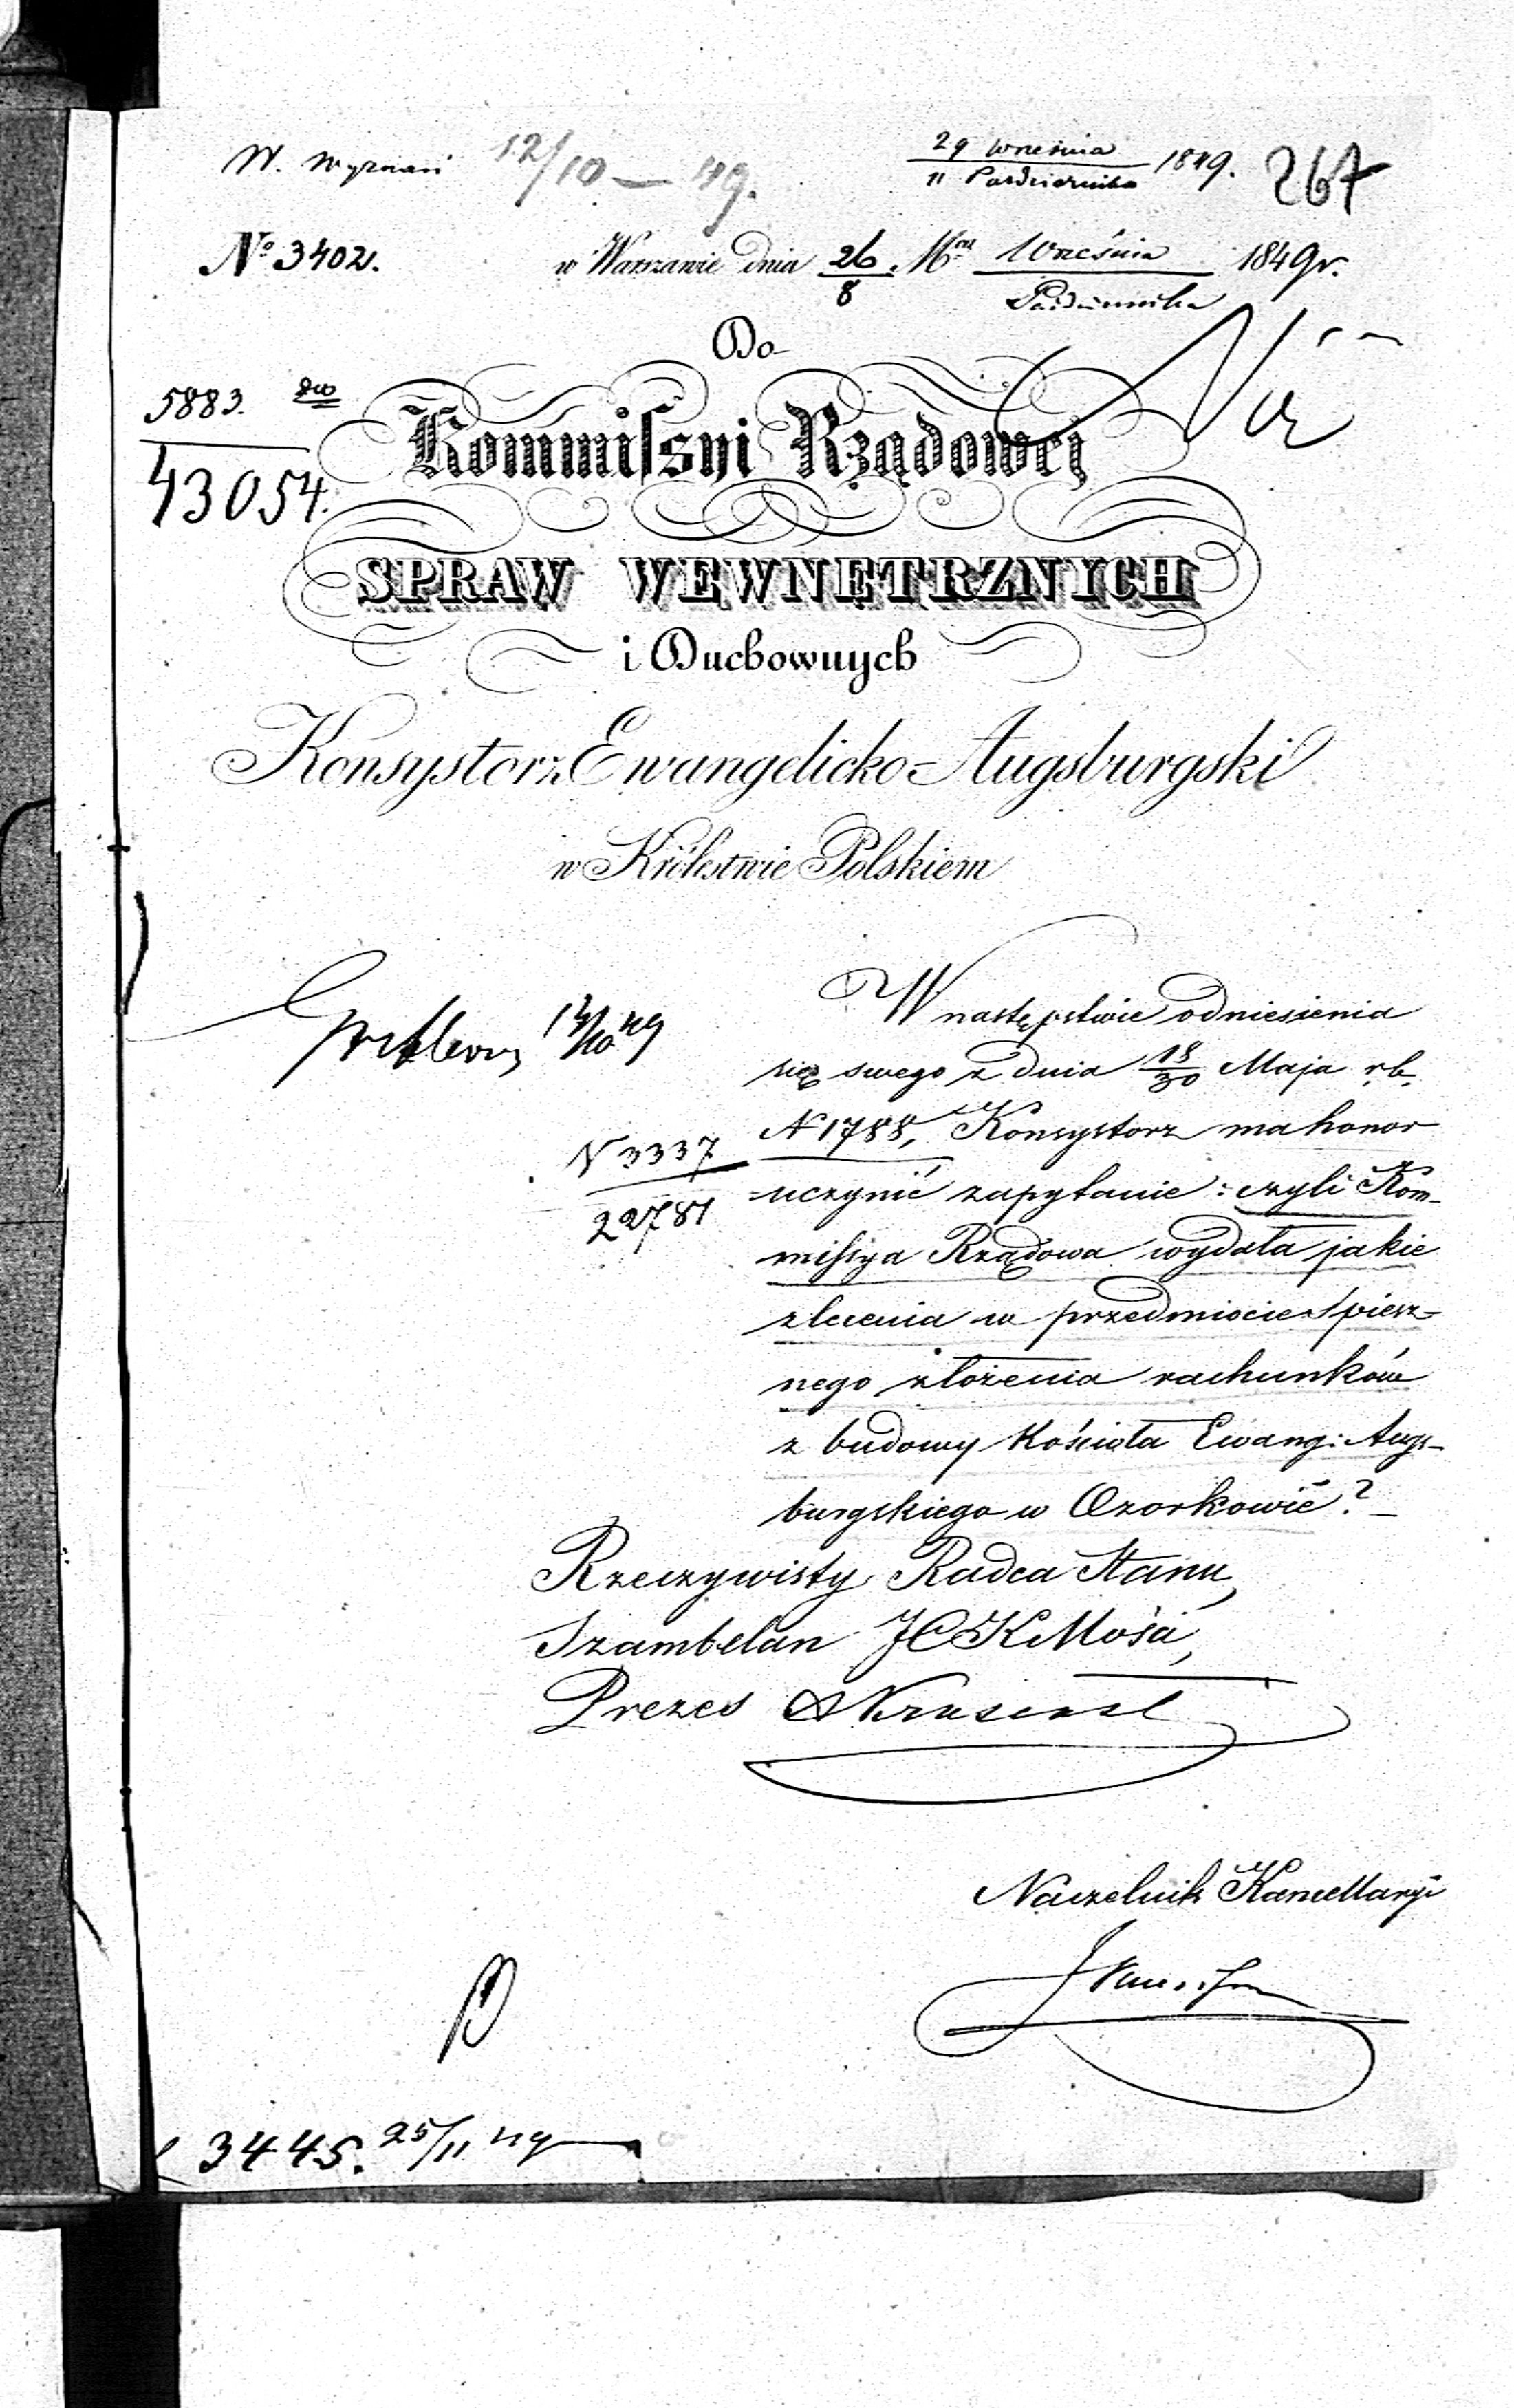 W. Wyznań 12/10 — 49. 29 Września / 11 Października 1849. 267
No 3402. w Warszawie dnia 26/8 Mca Września / Października 1849 r.
Do
5883.
43054.
Kommissyi Rządowej
SPRAW WEWNĘTRZNYCH
i Duchownych
Konsystorz Ewangelicko-Augsburgski
w Królestwie Polskiem
W następstwie odniesienia
się swego z dnia 18/30 Maja r.b.
N 1788, Konsystorz ma honor
N 3337
22781
uczynić zapytanie: czyli Kom-
missya Rządowa wydała jakie
zlecenia w przedmiocie spiesz-
nego złożenia rachunków
z budowy Kościoła Ewang: Augs-
burgskiego w Ozorkowie? –
Rzeczywisty Radca Stanu,
Szambelan JCKMości,
Prezes
Naczelnik Kancellaryi
3445. 25/11 49